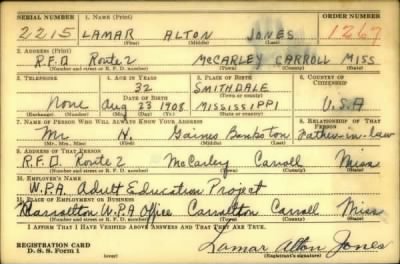 SERIAL NUMBER 1. NAME (Print) ORDER NUMBER
2215 LAMAR ALTON JONES 1267
(First) (Middle) (Last)
2. ADDRESS (Print)
R.F.D Route 2 McCARLEY CARROLL MISS
(Number and street or R. F. D. number) (Town) (County) (State)
3. TELEPHONE 4. AGE IN YEARS 5. PLACE OF BIRTH 6. COUNTRY OF CITIZENSHIP
32 SMITHDALE
DATE OF BIRTH (Town or county)
None Aug 23 1908 MISSISSIPPI U.S.A
(Exchange) (Number) (Mo.) (Day) (Yr.) (State or country)
7. NAME OF PERSON WHO WILL ALWAYS KNOW YOUR ADDRESS 8. RELATIONSHIP OF THAT PERSON
Mr H. Gaines Bankston Father-in-law
(Mr., Mrs., Miss) (First) (Middle) (Last)
9. ADDRESS OF THAT PERSON
R.F.D. Route 2 McCarley Carroll Miss
(Number and street or R. F. D. number) (Town) (County) (State)
10. EMPLOYER'S NAME
W.P.A. Adult Education Project
11. PLACE OF EMPLOYMENT OR BUSINESS
W.P.A Office Carrollton Carroll Miss
(Number and street or R. F. D. number) (Town) (County) (State)
I AFFIRM THAT I HAVE VERIFIED ABOVE ANSWERS AND THAT THEY ARE TRUE.
REGISTRATION CARD
D. S. S. Form 1 (over) Lamar Alton Jones
(Registrant's signature)